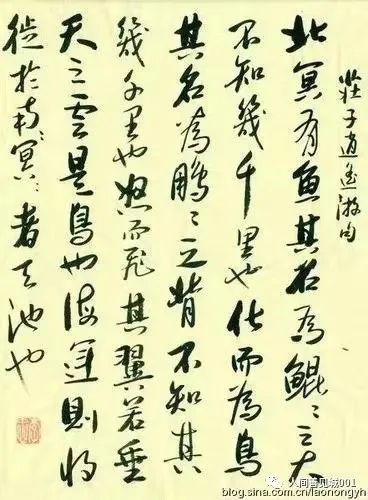 莊子逍遥游句
北冥有魚其名為鯤〻之大
不知幾千里也化而為鳥
其名為鵬〻之背不知其
幾千里也怒而飛其翼若垂
天之雲是鳥也海運則將
徙於南〻冥〻者天池也
人间善见城001
blog.sina.com.cn/laonongyh